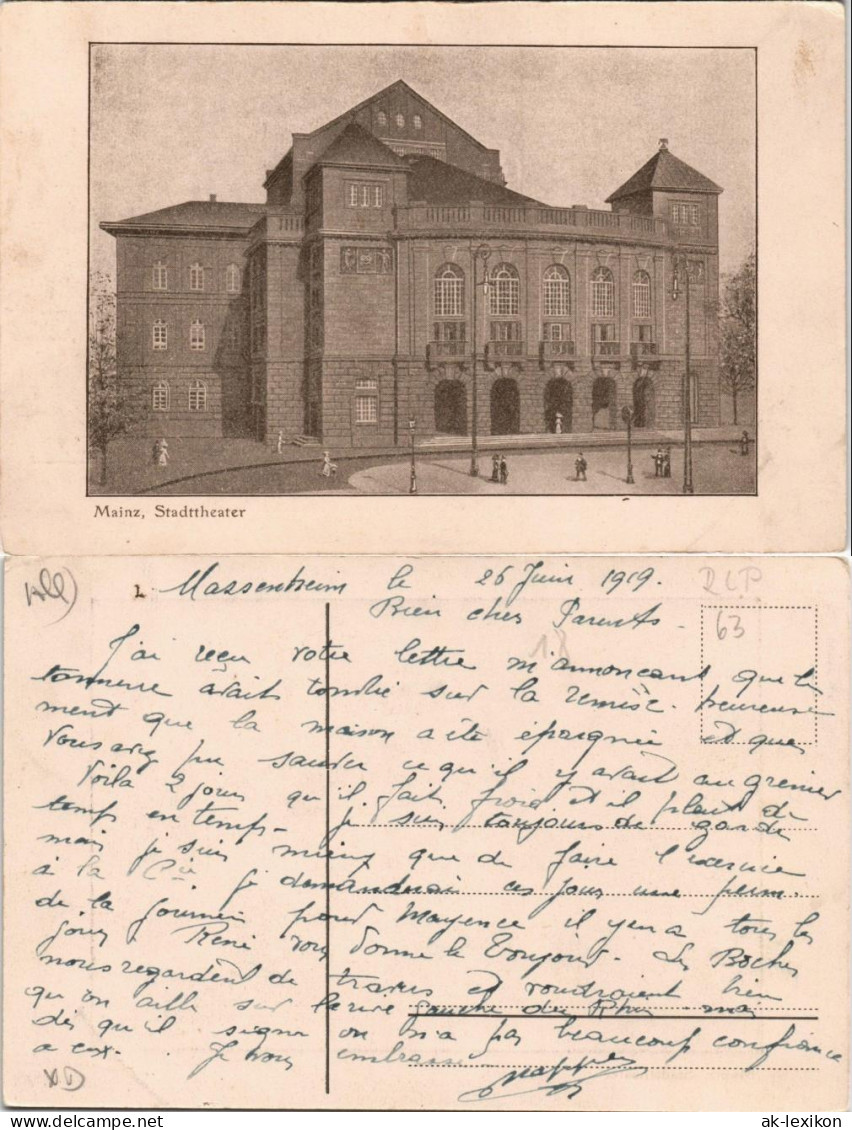 Mainz, Stadttheater
1. Massenheim le 26 Juin 1919.
RLP
63
18
Bien chers Parents
J'ai reçu votre lettre m'annonçant que le
tonnerre avait tombé sur la remise. heureuse
ment que la maison a été épargnée et que
vous avez pu sauver ce qu'il y avait au grenier
Voila 2 jours qu'il fait froid et il pleut de
temps en temps. Je suis toujours de garde
mais je suis mieux que de faire l'exercice
à la Cie je demanderai ces jours une perm.
de la journée pour Mayence il y en a tous les
jours. René vous donne le bonjour. Les Boches
nous regardent de travers et voudraient bien
qu'on aille sur la rive gauche du Rhin mais
dès qu'il signe on n'a pas beaucoup confiance
a eux. Je vous embrasse
ak-lexikon.com